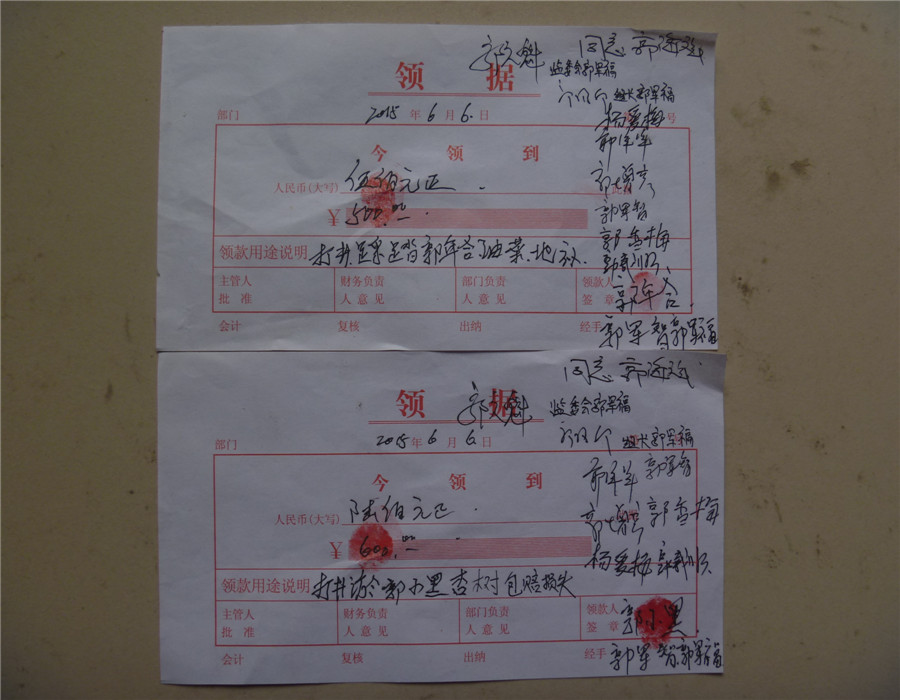 同意
领 据
监委会郭军福
组长郭军福
部门 2015 年 6 月 6 日 号
杨爱梅
今 领 到
人民币(大写) 伍佰元正
郭军智
¥ 500.00
郭香梅
领款用途说明 打井踩踏郭年合油菜地款
主管人 财务负责 部门负责 领款人
批 准 人意见 人意见 签 章 郭年合
会计 复核 出纳 经手 郭军智 郭军福
同意
领 据
监委会郭军福
组长郭军福
部门 2015 年 6 月 6 日
郭军智
今 领 到
人民币(大写) 陆佰元正
郭香梅
¥ 600.00
杨爱梅
领款用途说明 打井 郭小黑杏树包赔损失
主管人 财务负责 部门负责 领款人
批 准 人意见 人意见 签 章 郭小黑
会计 复核 出纳 经手 郭军智 郭军福